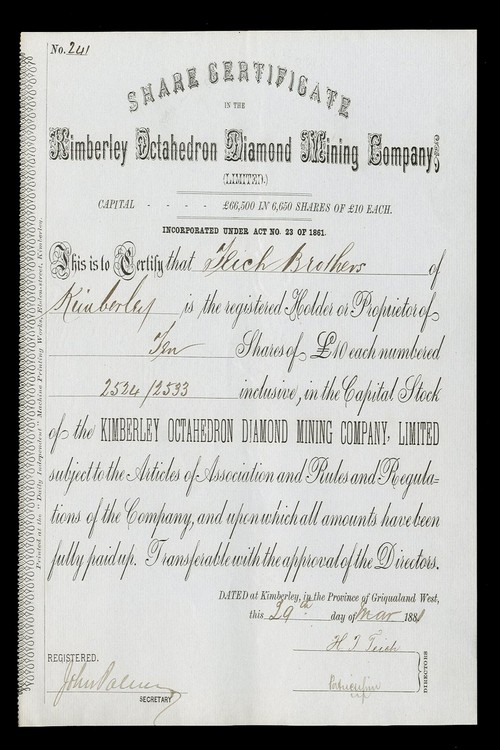 No. 241
SHARE CERTIFICATE
IN THE
Kimberley Octahedron Diamond Mining Company,
(LIMITED.)
CAPITAL - - - - £66,500 IN 6,650 SHARES OF £10 EACH.
INCORPORATED UNDER ACT NO. 23 OF 1861.
This is to Certify that Teich Brothers of
Kimberley is the registered Holder or Proprietor of
Ten Shares of £10 each numbered
2524/2533 inclusive, in the Capital Stock
of the KIMBERLEY OCTAHEDRON DIAMOND MINING COMPANY, LIMITED
subject to the Articles of Association and Rules and Regula-
tions of the Company, and upon which all amounts have been
fully paid up. Transferable with the approval of the Directors.
DATED at Kimberley, in the Province of Griqualand West,
this 29th day of Mar 1881
H J Teich
REGISTERED.
John
SECRETARY
DIRECTORS
Printed at the "Daily Independent" Machine Printing Works, Kimberley.